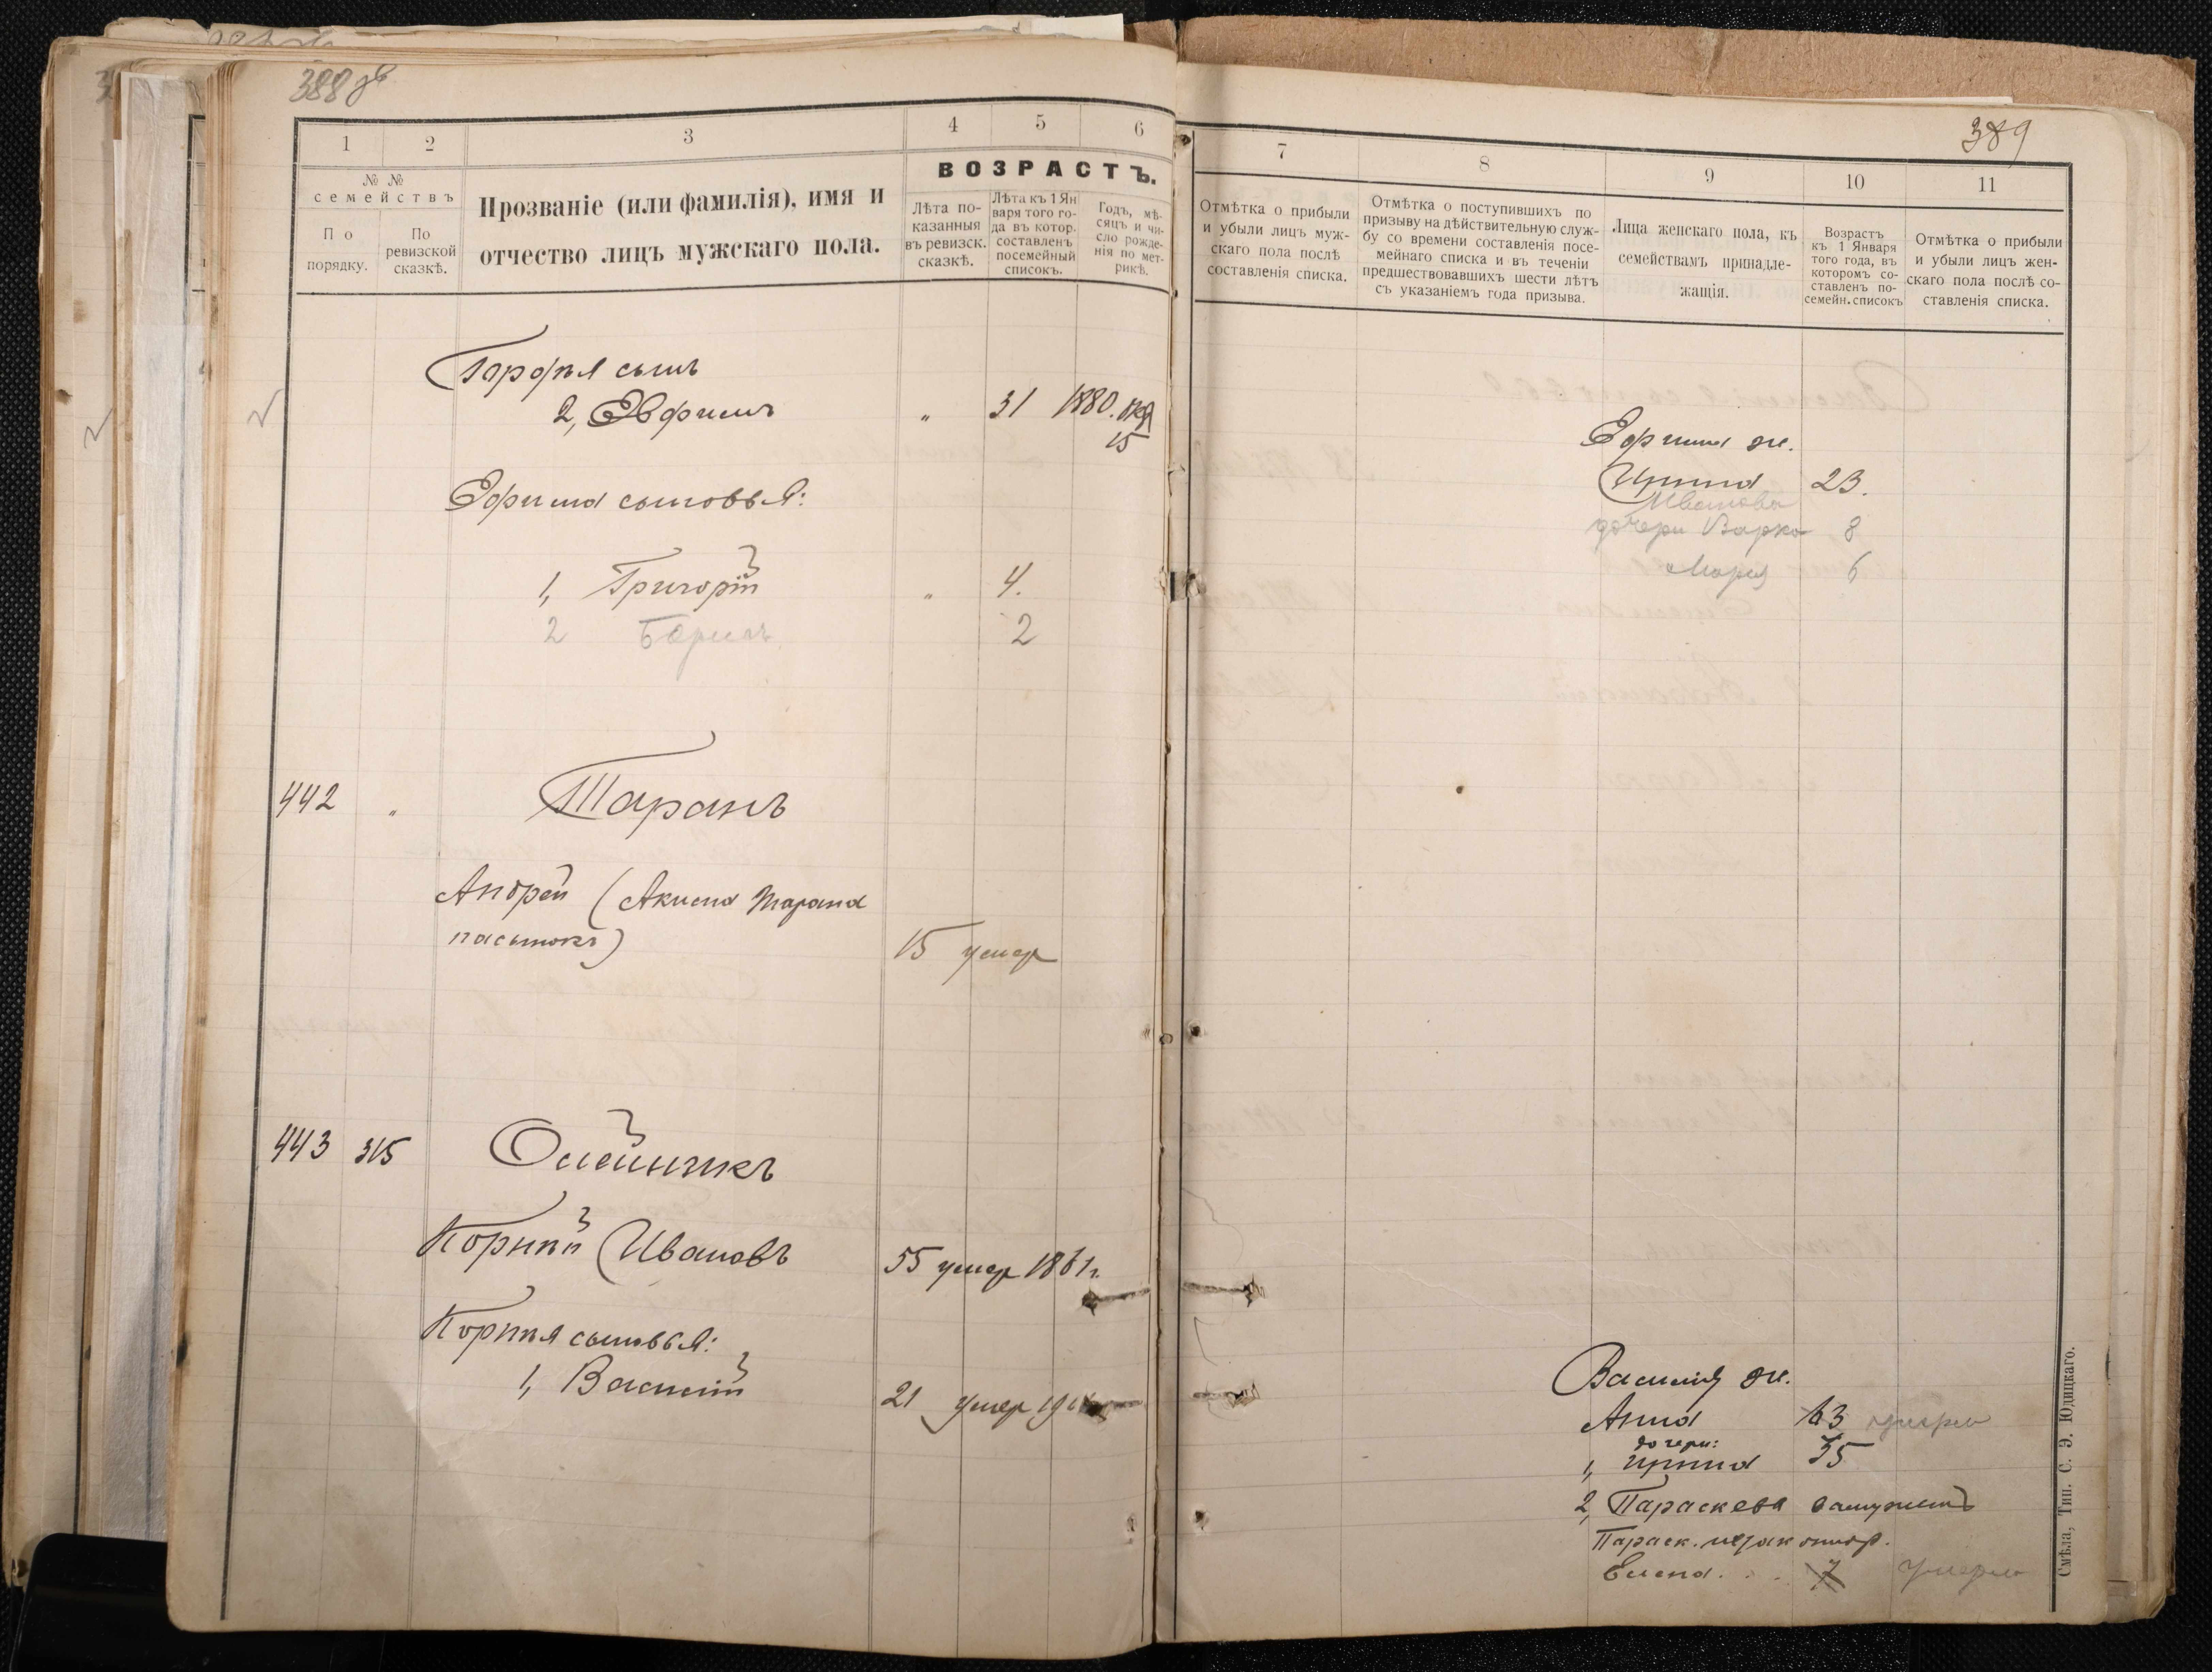 388 об
1
2
3
4
5
6
№ №
семействъ
По
порядку.
По
ревизской
сказкѣ.
Прозваніе (или фамилія), имя и
отчество лицъ мужскаго пола.
ВОЗРАСТЪ.
Лѣта по-
казанныя
въ ревизск.
сказкѣ.
Лѣта къ 1 Ян
варя того го-
да въ котор.
составленъ
посемейный
списокъ.
Годъ, мѣ-
сяцъ и чи-
сло рожде-
нія по мет-
рикѣ.
сынъ
2, Евфимъ " 31 1880.
15
Ефима сыновья:
1, Григорій " 4.
2 Борисъ 2
442 " Таранъ
Андрей (Акима Тарана
пасынокъ) 15 умер
443 315 Олейникъ
Корній Ивановъ 55 умер 1861 г.
Корнія сыновья:
1, Василій 21 умер
389
7
8
9
10
11
Отмѣтка о прибыли
и убыли лицъ муж-
скаго пола послѣ
составленія списка.
Отмѣтка о поступившихъ по
призыву на дѣйствительную служ-
бу со времени составленія посе-
мейнаго списка и въ теченіи
предшествовавшихъ шести лѣтъ
съ указаніемъ года призыва.
Лица женскаго пола, къ
семействамъ принадле-
жащія.
Возрастъ
къ 1 Января
того года, въ
которомъ со-
ставленъ по-
семейн. списокъ
Отмѣтка о прибыли
и убыли лицъ жен-
скаго пола послѣ со-
ставленія списка.
Ефима ж.
Ирина 23.
Иванова
дочери Варка 8
Мария 6
Василія ж.
Анна 63 умерла
дочери:
1, Ирина 35
2, Параскева замужемъ
Параск.
Елена. . . 7 Умерла
Смѣла, Тип. С. Э. Юдицкаго.